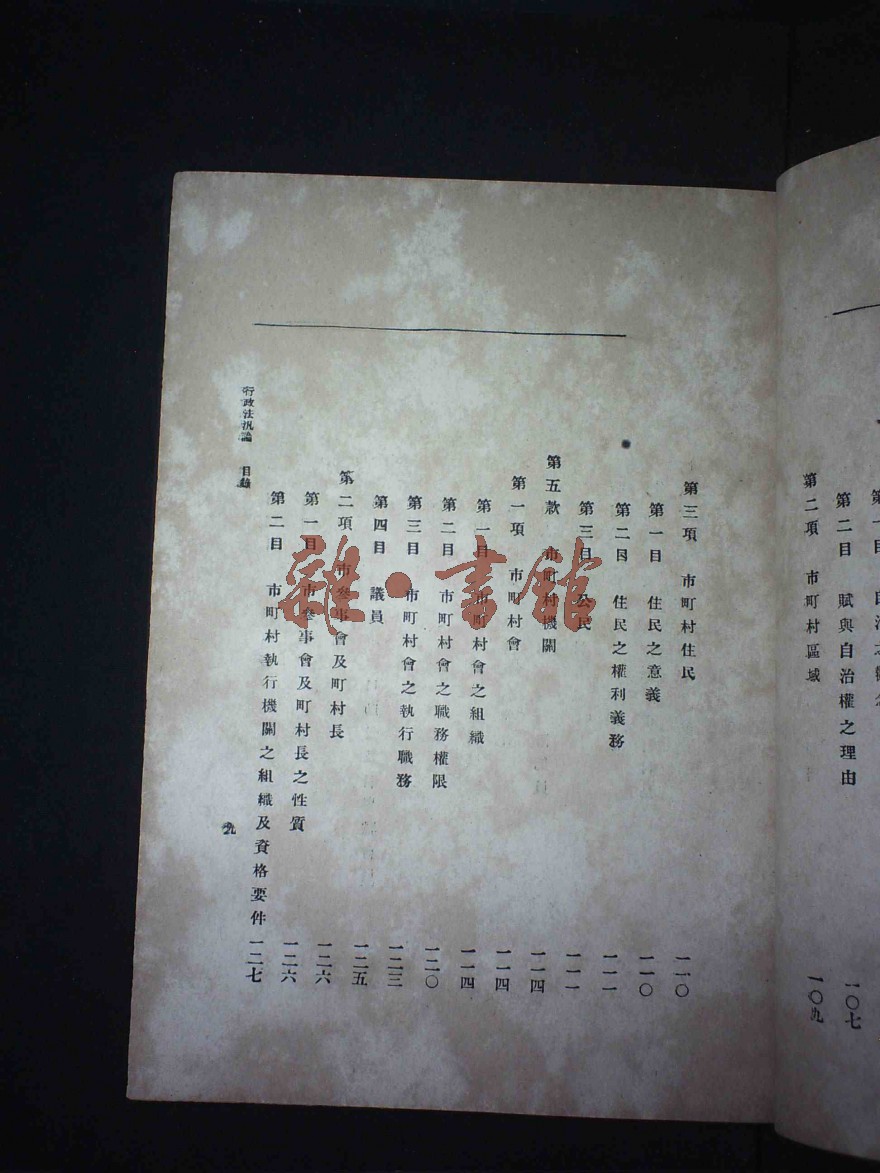 第二目 賦與自治權之理由 一〇七
第二項 市町村區域 一〇九
第三項 市町村住民 一一〇
第一目 住民之意義 一一〇
第二目 住民之權利義務 一一一
第三目 公民 一一一
第五款 市町村機關 一一四
第一項 市町村會 一一四
第一目 市町村會之組織 一一四
第二目 市町村會之職務權限 一二〇
第三目 市町村會之執行職務 一二三
第四目 議員 一二五
第二項 市參事會及町村長 一二六
第一目 市參事會及町村長之性質 一二六
第二目 市町村執行機關之組織及資格要件 一二七
行政法汎論 目錄
九
雜·書館